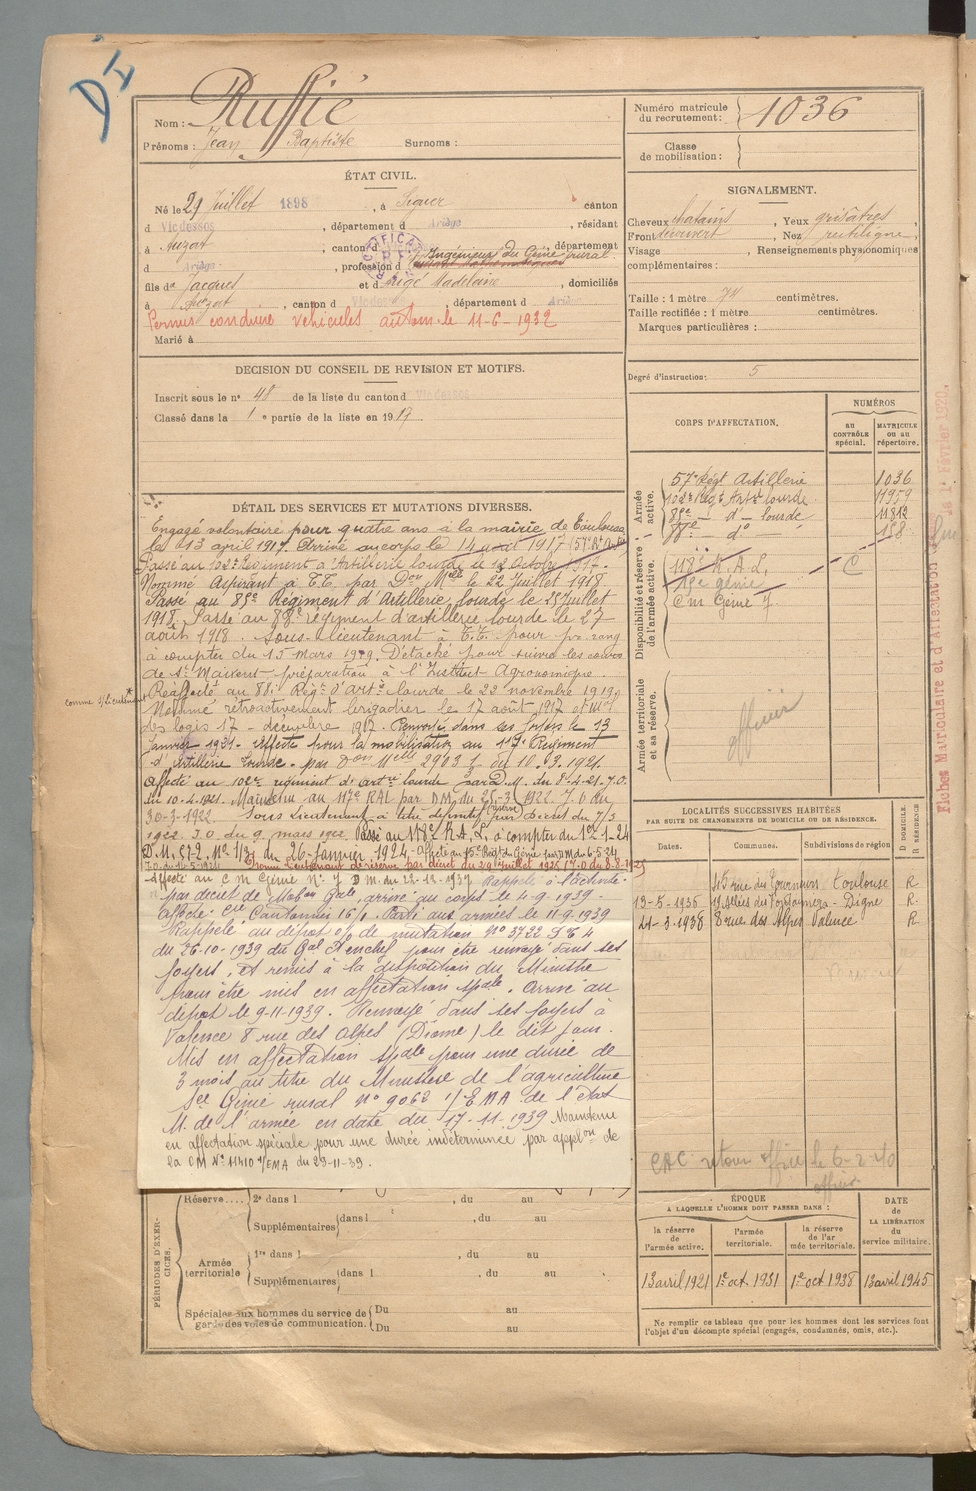 DI
Nom : Ruffié
Prénoms : Jean Baptiste Surnoms :
Numéro matricule du recrutement : 1036
Classe de mobilisation :
ÉTAT CIVIL.
Né le 29 Juillet 1898, à Siguer canton
d Vicdessos, département d Ariège, résidant
à Auzat, canton d, département
d Ariège, profession d Ingénieur du Génie rural
fils de Jacques et d Madelaine, domiciliés
à Auzat, canton d Vicdessos, département d Ariège
Permis conduire véhicules autom. le 11-6-1932
Marié à
SIGNALEMENT.
Cheveux chatains, Yeux grisâtres,
Front découvert, Nez rectiligne,
Visage Renseignements physionomiques
complémentaires :
Taille : 1 mètre 74 centimètres.
Taille rectifiée : 1 mètre centimètres.
Marques particulières :
Degré d'instruction : 5
DECISION DU CONSEIL DE REVISION ET MOTIFS.
Inscrit sous le n° 48 de la liste du canton d Vicdessos
Classé dans la 1e partie de la liste en 1917
CORPS D'AFFECTATION.
NUMÉROS
AU CONTRÔLE spécial.
MATRICULE ou au répertoire.
Armée active.
57e Régt Artillerie 1036
102e Régt Artie lourde 11959
85e - d° - lourde 11812
88e - d° - 158
Disponibilité et réserve de l'armée active.
118e R.A.L. C
15e génie
Cm Génie 7.
Armée territoriale et sa réserve.
officier
DÉTAIL DES SERVICES ET MUTATIONS DIVERSES.
Engagé volontaire pour quatre ans à la mairie de Toulouse
le 13 avril 1917. Arrivé au corps le 14 avril 1917 (57e R. Art)
Passé au 102e Régiment d'Artillerie lourde le 12 Octobre 1917.
Nommé Aspirant à T.T. par Don Mlle le 22 Juillet 1918
Passé au 85e Régiment d'Artillerie lourde le 25 Juillet
1918. Passé au 88e régiment d'artillerie lourde le 27
août 1918. Sous-lieutenant à T.T. pour pr. rang
à compter du 15 mars 1919. Détaché pour suivre les cours
de St Maixent préparation à l'Institut Agronomique.
comme s/Lieutenant
Réaffecté au 88e Régt d'Arte lourde le 22 novembre 1919
Nommé rétroactivement brigadier le 17 août 1917 et Mal
des logis 17 décembre 1917. Renvoyé dans ses foyers le 13
janvier 1921. Affecté pour la mobilisation au 117e Régiment
d'Artillerie Lourde. par Don Melle 2903 du 10.3.1921.
Affecté au 102e régiment d'artie lourde par D.M. du 8-4-21. J.O.
du 10-4-1921. Maintenu au 117e RAL par DM du 25-3-1922. J.O. du
30-3-1922. Sous Lieutenant à titre définitif par Décret du 7/3
1922. J.O. du 9 mars 1922. Passé au 118e R.A.L. à compter du 1er-1-24
D.M. 512. Nº 1/31 du 26-Janvier 1924. Affecté au 15e Régt du Génie par DM du 6-5-24
Promu Lieutenant de réserve par décret du 20 Juillet 1925 J.O. du 8-8-1925
Affecté au C M Génie Nº 7 D M. du 22-12-1937 Rappelé à l'activité
par décret de Mobon Gale, arrivé au corps le 4-9-1939.
Affecté Cie Cantonnt 16/1. Parti aux armées le 11-9-1939
Rappelé au dépôt o/ de mutation Nº 3722
du 26-10-1939 du Gal pour être renvoyé dans ses
foyers, et remis à la disposition du Ministre
pour être mis en affectation spale. Arrivé au
dépôt le 9-11-1939. Renvoyé dans ses foyers à
Valence 8 rue des Alpes (Drome) le dit jour.
Mis en affectation spale pour une durée de
3 mois au titre du Ministère de l'agriculture
Sce Génie rural Nº 9062 1/EMA de l'état
M. de l'armée en date du 17-11-1939 Maintenu
en affectation spéciale pour une durée indéterminée par applon de
la CM Nº 11410 1/EMA du 29-11-39.
LOCALITÉS SUCCESSIVES HABITÉES
PAR SUITE DE CHANGEMENTS DE DOMICILE OU DE RÉSIDENCE.
Dates. Communes. Subdivisions de région
D DOMICILE. R RÉSIDENCE
45 rue du Tourneurs Toulouse R
13-5-1936 Digne R.
21-3-1938 8 rue des Alpes Valence R
retour officier le 6-2-40
officier
PÉRIODES D'EXERCICES.
Réserve.... 2e dans l , du au
Supplémentaires dans l , du au
Armée territoriale 1re dans l , du au
Supplémentaires dans l , du au
Spéciales aux hommes du service de garde des voies de communication. Du au
Du au
ÉPOQUE
A LAQUELLE L'HOMME DOIT PASSER DANS :
la réserve de l'armée active.
l'armée territoriale.
la réserve de l'armée territoriale.
DATE de LA LIBÉRATION du service militaire.
13 avril 1921 1er oct 1931 1er oct 1938 13 avril 1945
Ne remplir ce tableau que pour les hommes dont les services font
l'objet d'un décompte spécial (engagés, condamnés, omis, etc.).
Fiches Matriculaire et d'Affectation le 1er Février 1920.